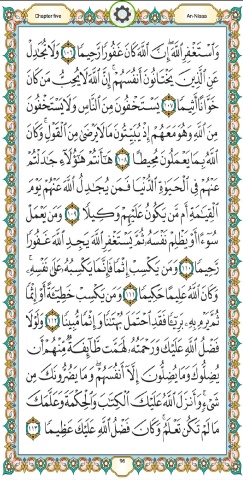 Chapter five
An-Nisaa
وَٱسْتَغْفِرِ ٱللَّهَ إِنَّ ٱللَّهَ كَانَ غَفُورًا رَّحِيمًا ١٠٦ وَلَا تُجَٰدِلْ
عَنِ ٱلَّذِينَ يَخْتَانُونَ أَنفُسَهُمْ إِنَّ ٱللَّهَ لَا يُحِبُّ مَن كَانَ
خَوَّانًا أَثِيمًا ١٠٧ يَسْتَخْفُونَ مِنَ ٱلنَّاسِ وَلَا يَسْتَخْفُونَ
مِنَ ٱللَّهِ وَهُوَ مَعَهُمْ إِذْ يُبَيِّتُونَ مَا لَا يَرْضَىٰ مِنَ ٱلْقَوْلِ وَكَانَ
ٱللَّهُ بِمَا يَعْمَلُونَ مُحِيطًا ١٠٨ هَٰٓأَنتُمْ هَٰٓؤُلَآءِ جَٰدَلْتُمْ
عَنْهُمْ فِى ٱلْحَيَوٰةِ ٱلدُّنْيَا فَمَن يُجَٰدِلُ ٱللَّهَ عَنْهُمْ يَوْمَ
ٱلْقِيَٰمَةِ أَم مَّن يَكُونُ عَلَيْهِمْ وَكِيلًا ١٠٩ وَمَن يَعْمَلْ
سُوٓءًا أَوْ يَظْلِمْ نَفْسَهُۥ ثُمَّ يَسْتَغْفِرِ ٱللَّهَ يَجِدِ ٱللَّهَ غَفُورًا
رَّحِيمًا ١١٠ وَمَن يَكْسِبْ إِثْمًا فَإِنَّمَا يَكْسِبُهُۥ عَلَىٰ نَفْسِهِۦ
وَكَانَ ٱللَّهُ عَلِيمًا حَكِيمًا ١١١ وَمَن يَكْسِبْ خَطِيٓـَٔةً أَوْ إِثْمًا
ثُمَّ يَرْمِ بِهِۦ بَرِيٓـًٔا فَقَدِ ٱحْتَمَلَ بُهْتَٰنًا وَإِثْمًا مُّبِينًا ١١٢ وَلَوْلَا
فَضْلُ ٱللَّهِ عَلَيْكَ وَرَحْمَتُهُۥ لَهَمَّت طَّآئِفَةٌ مِّنْهُمْ أَن
يُضِلُّوكَ وَمَا يُضِلُّونَ إِلَّآ أَنفُسَهُمْ وَمَا يَضُرُّونَكَ مِن
شَىْءٍ وَأَنزَلَ ٱللَّهُ عَلَيْكَ ٱلْكِتَٰبَ وَٱلْحِكْمَةَ وَعَلَّمَكَ
مَا لَمْ تَكُن تَعْلَمُ وَكَانَ فَضْلُ ٱللَّهِ عَلَيْكَ عَظِيمًا ١١٣
96